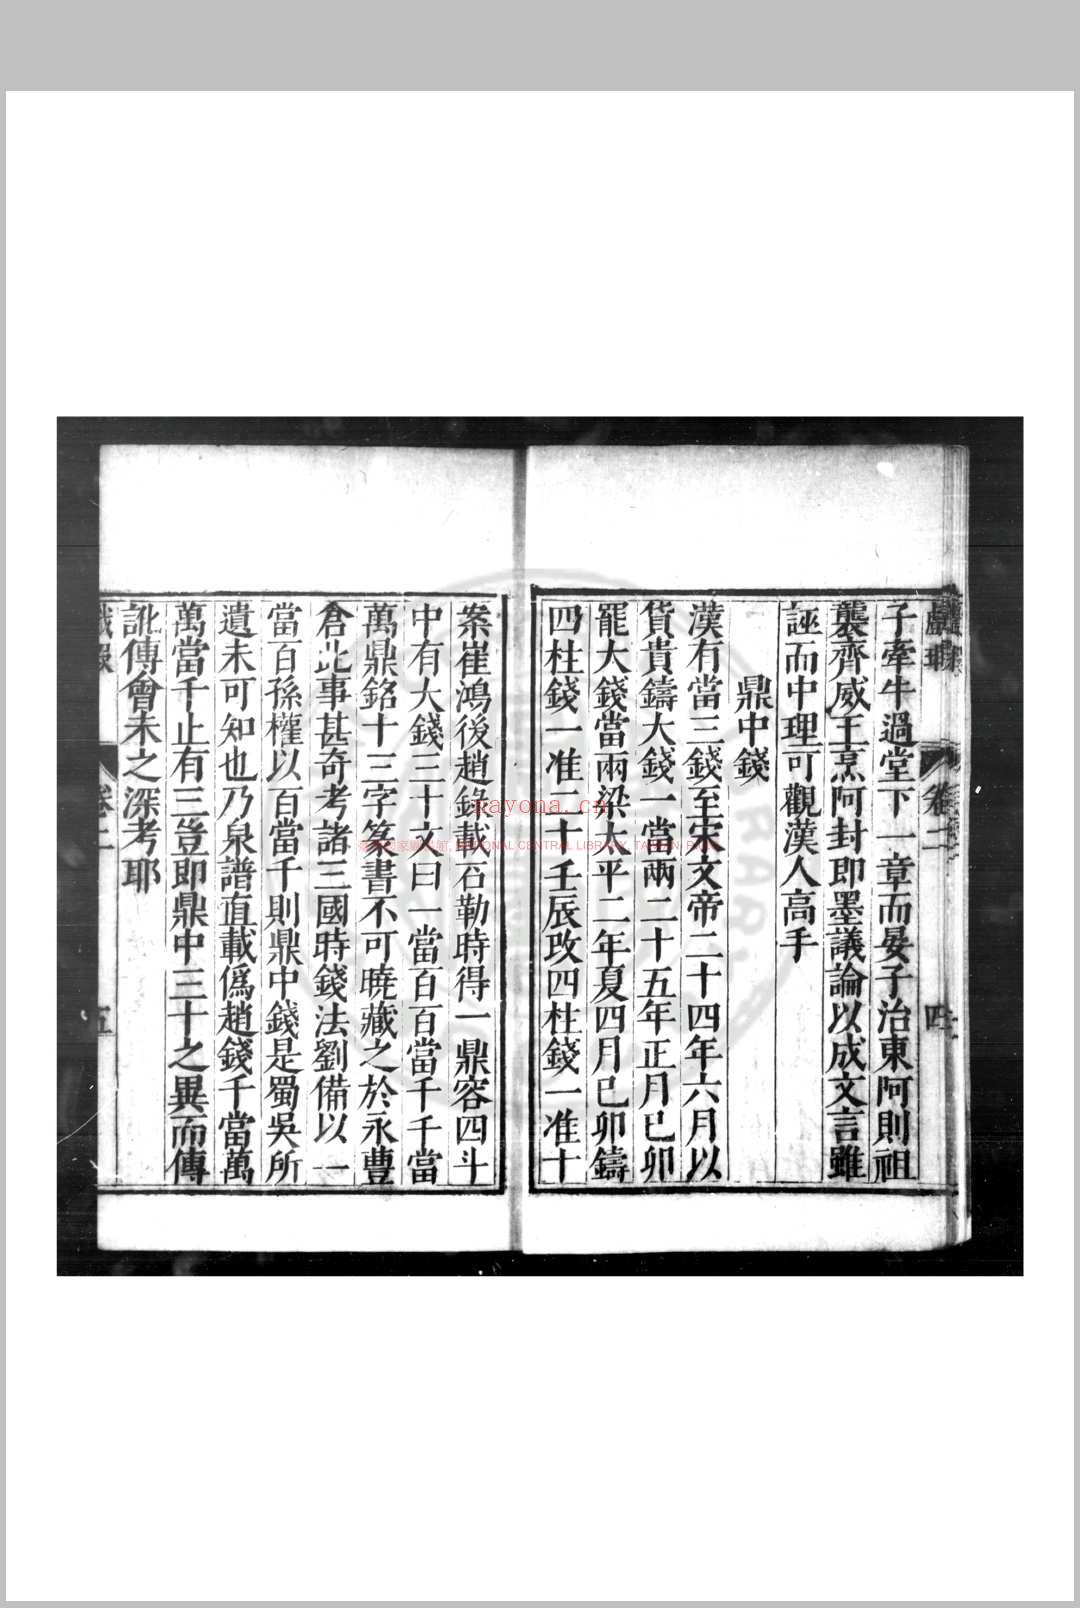 子牽牛過堂下一章而晏子治東阿則祖
襲齊威王烹阿封即墨議論以成文言雖
誣而中理可觀漢人高手
鼎中錢
漢有當三錢至宋文帝二十四年六月以
貨貴鑄大錢一當兩二十五年正月已卯
罷大錢當兩梁太平二年夏四月已卯鑄
四柱錢一准二十壬辰改四柱錢一准十
案崔鴻後趙錄載石勒時得一鼎容四斗
中有大錢三十文曰一當百百當千千當
萬鼎銘十三字篆書不可曉藏之於永豊
倉此事甚奇考諸三國時錢法劉備以一
當百孫權以百當千則鼎中錢是蜀吳所
遺未可知也乃泉譜直載僞趙錢千當萬
萬當千止有三豈即鼎中三十之異而傳
訛傳會未之深考耶
卷二
四
卷二
五
nayona.cn
NATIONAL CENTRAL LIBRARY, TAIWAN